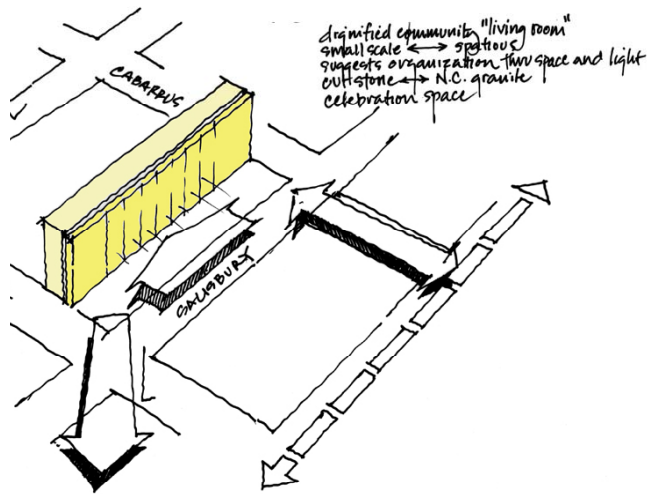 dignified community "living room"
small scale ↔ spatious
suggests organization thru space and light
cut stone ↔ N.C. granite
celebration space
CABARRUS
SALISBURY